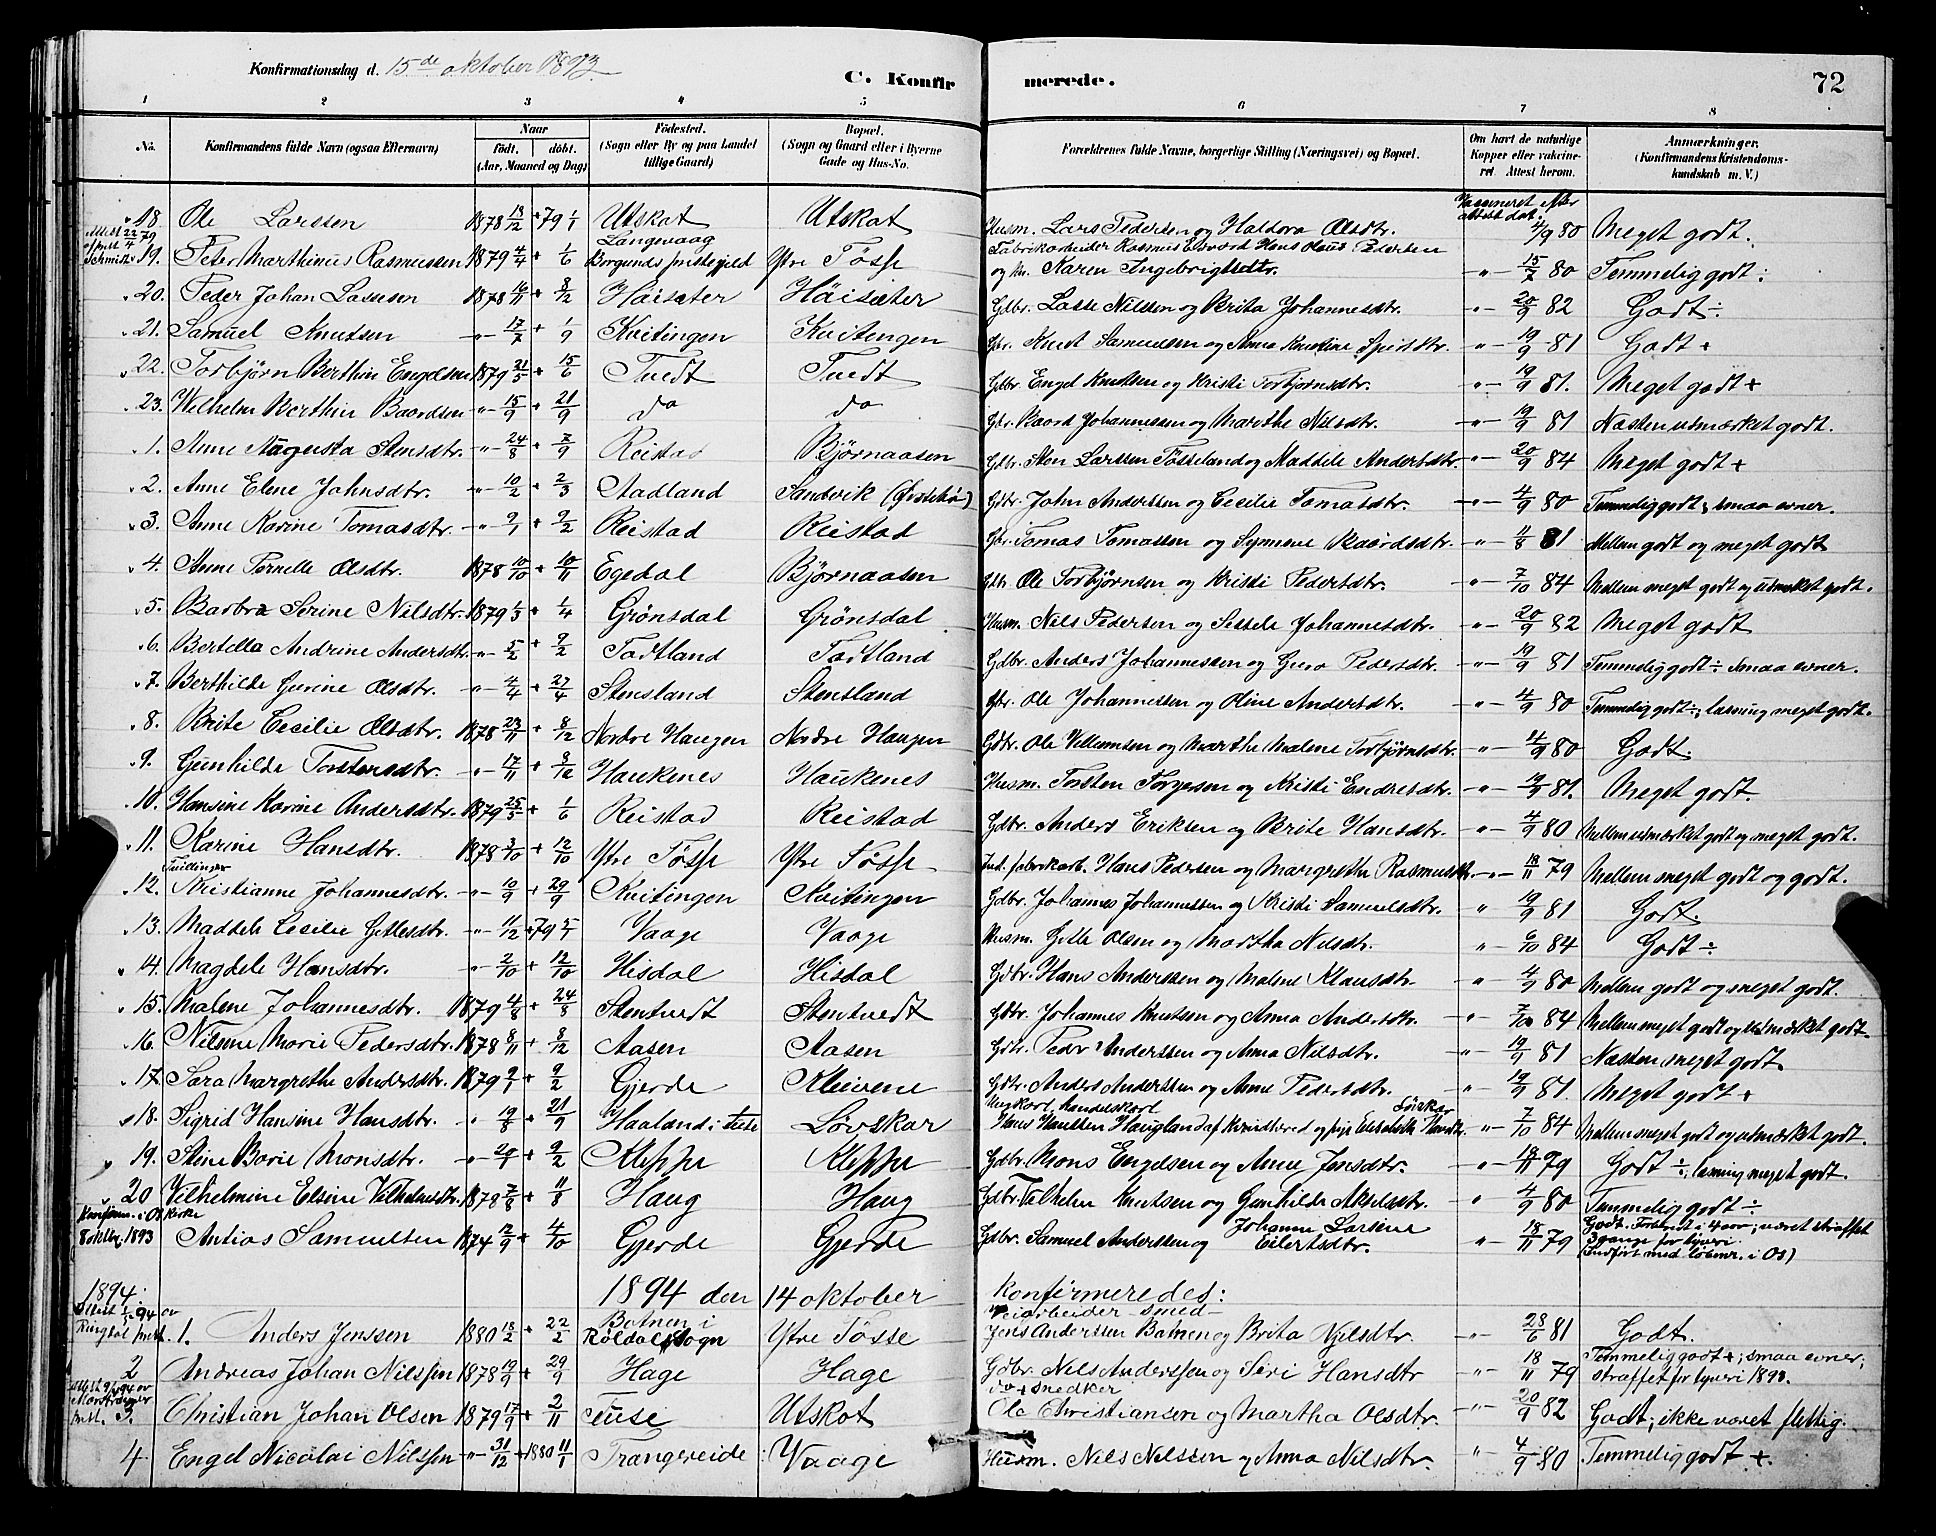 Konfirmationsdag d. 15de oktober 1893
C. Konfirmerede.
72
1 2 3 4 5 6 7 8
No. | Konfirmandens fulde Navn (ogsaa Efternavn) | Naar födt. döbt. (Aar, Maaned og Dag) | Födested. (Sogn eller By og paa Landet tillige Gaard) | Bopæl. (Sogn og Gaard eller i Byerne Gade og Hus-No. | Forældrenes fulde Navne, borgerlige Stilling (Næringsvei) og Bopæl. | Om havt de naturlige Kopper eller vakcineret. Attest herom. | Anmærkninger. (Konfirmandens Kristendomskundskab m. V.)
18. Ole Larssen 1878 13/12 + 79 1/1 Utskot Utskot Husm. Lars Pedersen og Haldora Olsdtr. Vaccineret efter attest dat. 4/9 80 Meget godt.
19. Peter Marthinus Rasmussen 1879 4/4 + 1/6 Langevaag Borgunds præstegjeld Ytre Tösse Fabrikarbeider Rasmus Elsvord Hans Olaus Petersen og hu. Karen Ingebrigtsdtr. -"- 15/7 80 Temmelig godt ÷
20. Peder Johan Lassesen 1878 16/11 + 8/12 Häisæter Häisæter Gdbr. Lasse Nilssen og Brita Johannesdtr. -"- 20/9 82 Godt ÷
21. Samuel Knutsen -"- 17/7 + 1/9 Kvitingen Kvitengen Gbr. Knut Samuelsen og Anna Kristine Spirsdtr. -"- 19/9 81 Godt +
22. Torbjörn Berthin Engelsen 1879 21/5 + 15/6 Tuedt Tuedt Gdbr. Engel Knutsen og Kristi Torbjörnsdtr. -"- 19/9 81. Meget godt +
23. Wilhelm Berthin Baardsen -"- 15/9 + 21/9 do do Gbr. Baard Johannessen og Marthe Nilsdtr. -"- 19/9 81 Næsten utmærket godt.
1. Anne Augusta Stensdtr. -"- 24/8 + 7/9 Reistad Björnaasen Gdbr. Sten Larssen Tösseland og Maddele Andersdtr. -"- 20/9 84 Meget godt +
2. Anne Elene Johnsdtr. -"- 10/2 + 2/3 Aadland Sandvik Gdbr. John Anderssen og Cecilie Tomasdtr. -"- 4/9 80 Temmelig godt; smaa evner.
3. Anne Karine Tomasdtr. -"- 9/1 + 9/2 Reistad Reistad Gbr. Tomas Tomassen og Synneve Baardsdtr. -"- 11/8 81 Mellem godt og meget godt
4. Anne Pernelle Olsdtr. 1878 10/10 + 10/11 Egedal Björnaasen Gdbr. Ole Torbjörnsen og Kristi Pedersdtr. -"- 7/10 84 Mellem meget godt og utmerket godt.
5. Barbra Serine Nilsdtr. 1879 1/3 + 1/4 Grönsdal Grönsdal Husm. Nils Pedersen og Sissele Johannesdtr. -"- 20/9 82 Meget godt
6. Bertella Andrine Andersdtr. -"- 5/2 + 9/2 Tadtland Tadtland Gdbr. Anders Johannessen og Guro Pedersdtr. -"- 19/9 81 Temmelig godt ÷ Smaa evner.
7. Berthilde Gurine Olsdtr. -"- 4/4 + 27/4 Stensland Stensland Gbr. Ole Johannessen og Oline Andersdtr. -"- 4/9 80 Temmelig godt ÷; læsning meget godt.
8. Brite Cecilie Olsdtr. 1878 23/11 + 8/12 Nordre Haugen Nordre Haugen Gdbr. Ole Villumsen og Marthe Malene Torbjörnsdtr. -"- 4/9 80 Godt.
9. Gunhilde Torstensdtr. -"- 17/11 + 8/12 Haukenes Haukenes Husm. Torsten Torgersen og Kristi Endresdtr. -"- 19/9 81. Meget godt.
10. Hansine Karine Andersdtr. 1879 25/5 + 1/6 Reistad Reistad Gdbr. Anders Eriksen og Brite Hansdtr. -"- 4/9 80 Mellem utmærket godt og meget godt.
11. Karine Hansdtr. 1878 3/10 + 12/10 Ytre Tösse Ytre Tösse Ind. fabrikarb. Hans Pedersen og Margrethe Rasmusdtr. -"- 18/11 79 Mellem meget godt og godt.
12. Tvillinger Kristianne Johannesdtr. -"- 10/9 + 29/9 Kvitingen Kvitingen Gdbr. Johannes Johannessen og Kristi Samuelsdtr. " 19/9 81 Godt.
13. Maddele Cecilie Gitlesdtr. -"- 11/12 + 79 5/1 Vaage Vaage Husm. Gitle Olsen og Martha Nilsdtr. " 6/10 84 Godt ÷
14. Magdele Hansdtr. -"- 2/10 + 12/10 Hisdal Hisdal Gdbr. Hans Anderssen og Malene Klausdtr. -"- 4/9 80 Mellem godt og meget godt.
15. Malene Johannesdtr. 1879 4/8 + 24/8 Stentvedt Stentvedt Gdbr. Johannes Knutsen og Anna Andersdtr. -"- 7/10 84 Mellem meget godt og utmærket godt
16. Nilsine Marie Pedersdtr. 1878 8/11 + 8/12 Aasen Aasen Gdbr. Peder Anderssen og Anna Nilsdtr. -"- 19/9 81 Næsten meget godt
17. Sara Margrethe Andersdtr. 1879 9/1 + 9/2 Gjerde Kleivene Gdbr. Anders Anderssen og Anne Pedersdtr. " 19/9 81 Meget godt +
18. Sigrid Hansine Hansdtr. " 19/8 + 21/9 Haaland i Lövskar Ungkarl, handelskarl Hans Hanssen Haugland af Kvindherred og pige Elisabeth Hansdtr. Lövskar " 7/10 84 Mellem meget godt og utmærket godt.
19. Stine Borie Monsdtr. -"- 20/1 + 9/2 Kleppe Kleppe Gdbr. Mons Engelsen og Anne Jensdtr. " 18/11 79 Godt ÷; læsning meget godt.
20 Vilhelmine Elsine Vilhelmsdtr. 1878 7/8 + 11/8 Haug Haug Gdbr. Vilhelm Knutsen og Gunhilde Akselsdtr. " 4/9 80 Temmelig godt ÷
Konfirm. i Os kirke 8 oktbr. 1893 Antias Samuelsen 1874 12/9 + 4/10 Gjerde Gjerde Gdbr. Samuel Anderssen og Johanna Larsine Eilertsdtr. " 18/11 79 Godt. Forsömt i 4 aar; været straffet 3 gange for tyveri. (Indfört med löbenr. i Os)
1894. 1894 den 14 oktober konfirmeredes:
1. Anders Jenssen 1880 18/2 + 22/2 Botnen i Röldal sogn Ytre Tösse Veiarbeider smed Jens Anderssen Botnen og Brita Nilsdtr. -"- 28/6 81 Godt.
2 Andreas Johan Nilssen 1878 19/9 + 29/9 Hage Hage Gdbr. Nils Anderssen og Siri Hansdtr " 18/11 79 Temmelig godt +; smaa evner; straffet for tyveri 1893.
3. Christian Johan Olsen 1879 17/9 + 2/11 Tuse Utskot do + snedker Ole Christiansen og Martha Olsdtr. -"- 20/9 82 Godt; ikke været flittig.
4 Engel Nicolai Nilssen -"- 31/12 + 1880 11/1 Trangereide Vaage Husm. Nils Nilssen og Anna Nilsdtr. " 4/9 80 Temmelig godt +.